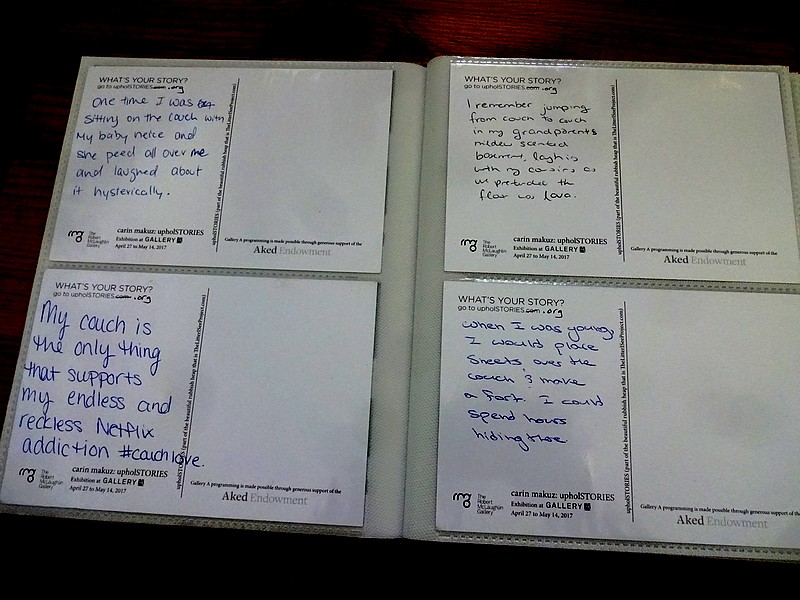 WHAT'S YOUR STORY?
go to upholSTORIES.com .org
One time I was
sitting on the couch with
my baby neice and
she peed all over me
and laughed about
it hysterically.
upholSTORIES (part of the beautiful rubbish heap that is TheLitterISeeProject.com)
rmg
The
Robert
McLaughlin
Gallery
carin makuz: upholSTORIES
Exhibition at GALLERY A
April 27 to May 14, 2017
Gallery A programming is made possible through generous support of the
Aked Endowment
WHAT'S YOUR STORY?
go to upholSTORIES.com .org
My couch is
the only thing
that supports
my endless and
reckless Netflix
addiction #couchlove.
upholSTORIES (part of the beautiful rubbish heap that is TheLitterISeeProject.com)
rmg
The
Robert
McLaughlin
Gallery
carin makuz: upholSTORIES
Exhibition at GALLERY A
April 27 to May 14, 2017
Gallery A programming is made possible through generous support of the
Aked Endowment
WHAT'S YOUR STORY?
go to upholSTORIES.com .org
I remember jumping
from couch to couch
in my grandparents
mildew scented
basement, laughing
with my cousins as
we pretended the
floor was lava.
upholSTORIES (part of the beautiful rubbish heap that is TheLitterISeeProject.com)
rmg
The
Robert
McLaughlin
Gallery
carin makuz: upholSTORIES
Exhibition at GALLERY A
April 27 to May 14, 2017
Gallery A programming is made possible through generous support of the
Aked Endowment
WHAT'S YOUR STORY?
go to upholSTORIES.com .org
When I was young
I would place
sheets over the
couch & make
a fort. I could
spend hours
hiding there
upholSTORIES (part of the beautiful rubbish heap that is TheLitterISeeProject.com)
rmg
The
Robert
McLaughlin
Gallery
carin makuz: upholSTORIES
Exhibition at GALLERY A
April 27 to May 14, 2017
Gallery A programming is made possible through generous support of the
Aked Endowment